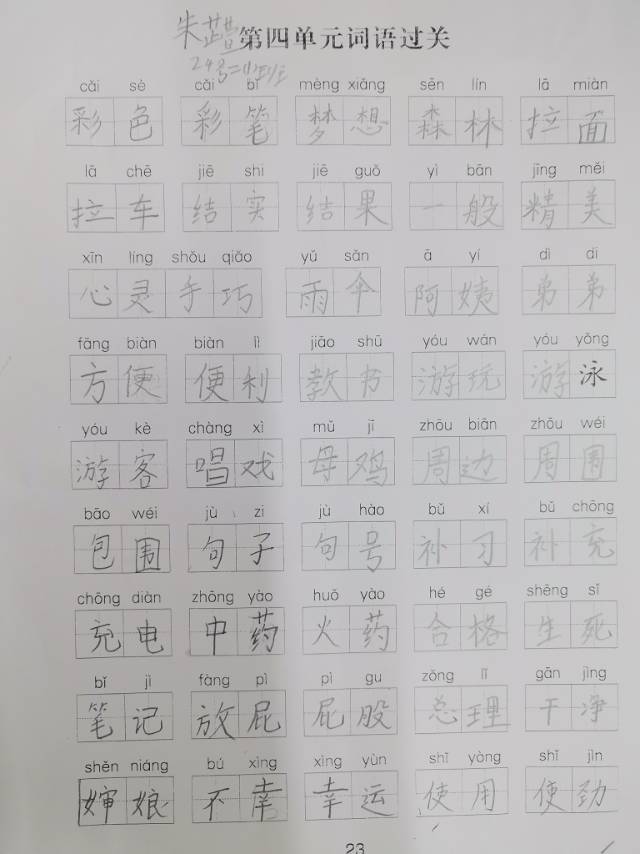 第四单元词语过关
cǎi sè cǎi bǐ mèng xiǎng sēn lín lā miàn
彩色 彩笔 梦想 森林 拉面
lā chē jiē shi jiē guǒ yì bān jīng měi
拉车 结实 结果 一般 精美
xīn líng shǒu qiǎo yǔ sǎn ā yí dì di
心灵手巧 雨伞 阿姨 弟弟
fāng biàn biàn lì jiāo shū yóu wán yóu yǒng
方便 便利 教书 游玩 游泳
yóu kè chàng xì mǔ jī zhōu biān zhōu wéi
游客 唱戏 母鸡 周边 周围
bāo wéi jù zi jù hào bǔ xí bǔ chōng
包围 句子 句号 补习 补充
chōng diàn zhōng yào huǒ yào hé gé shēng sǐ
充电 中药 火药 合格 生死
bǐ jì fàng pì pì gu zǒng lǐ gān jìng
笔记 放屁 屁股 总理 干净
shěn niáng bú xìng xìng yùn shǐ yòng shǐ jìn
婶娘 不幸 幸运 使用 使劲
23